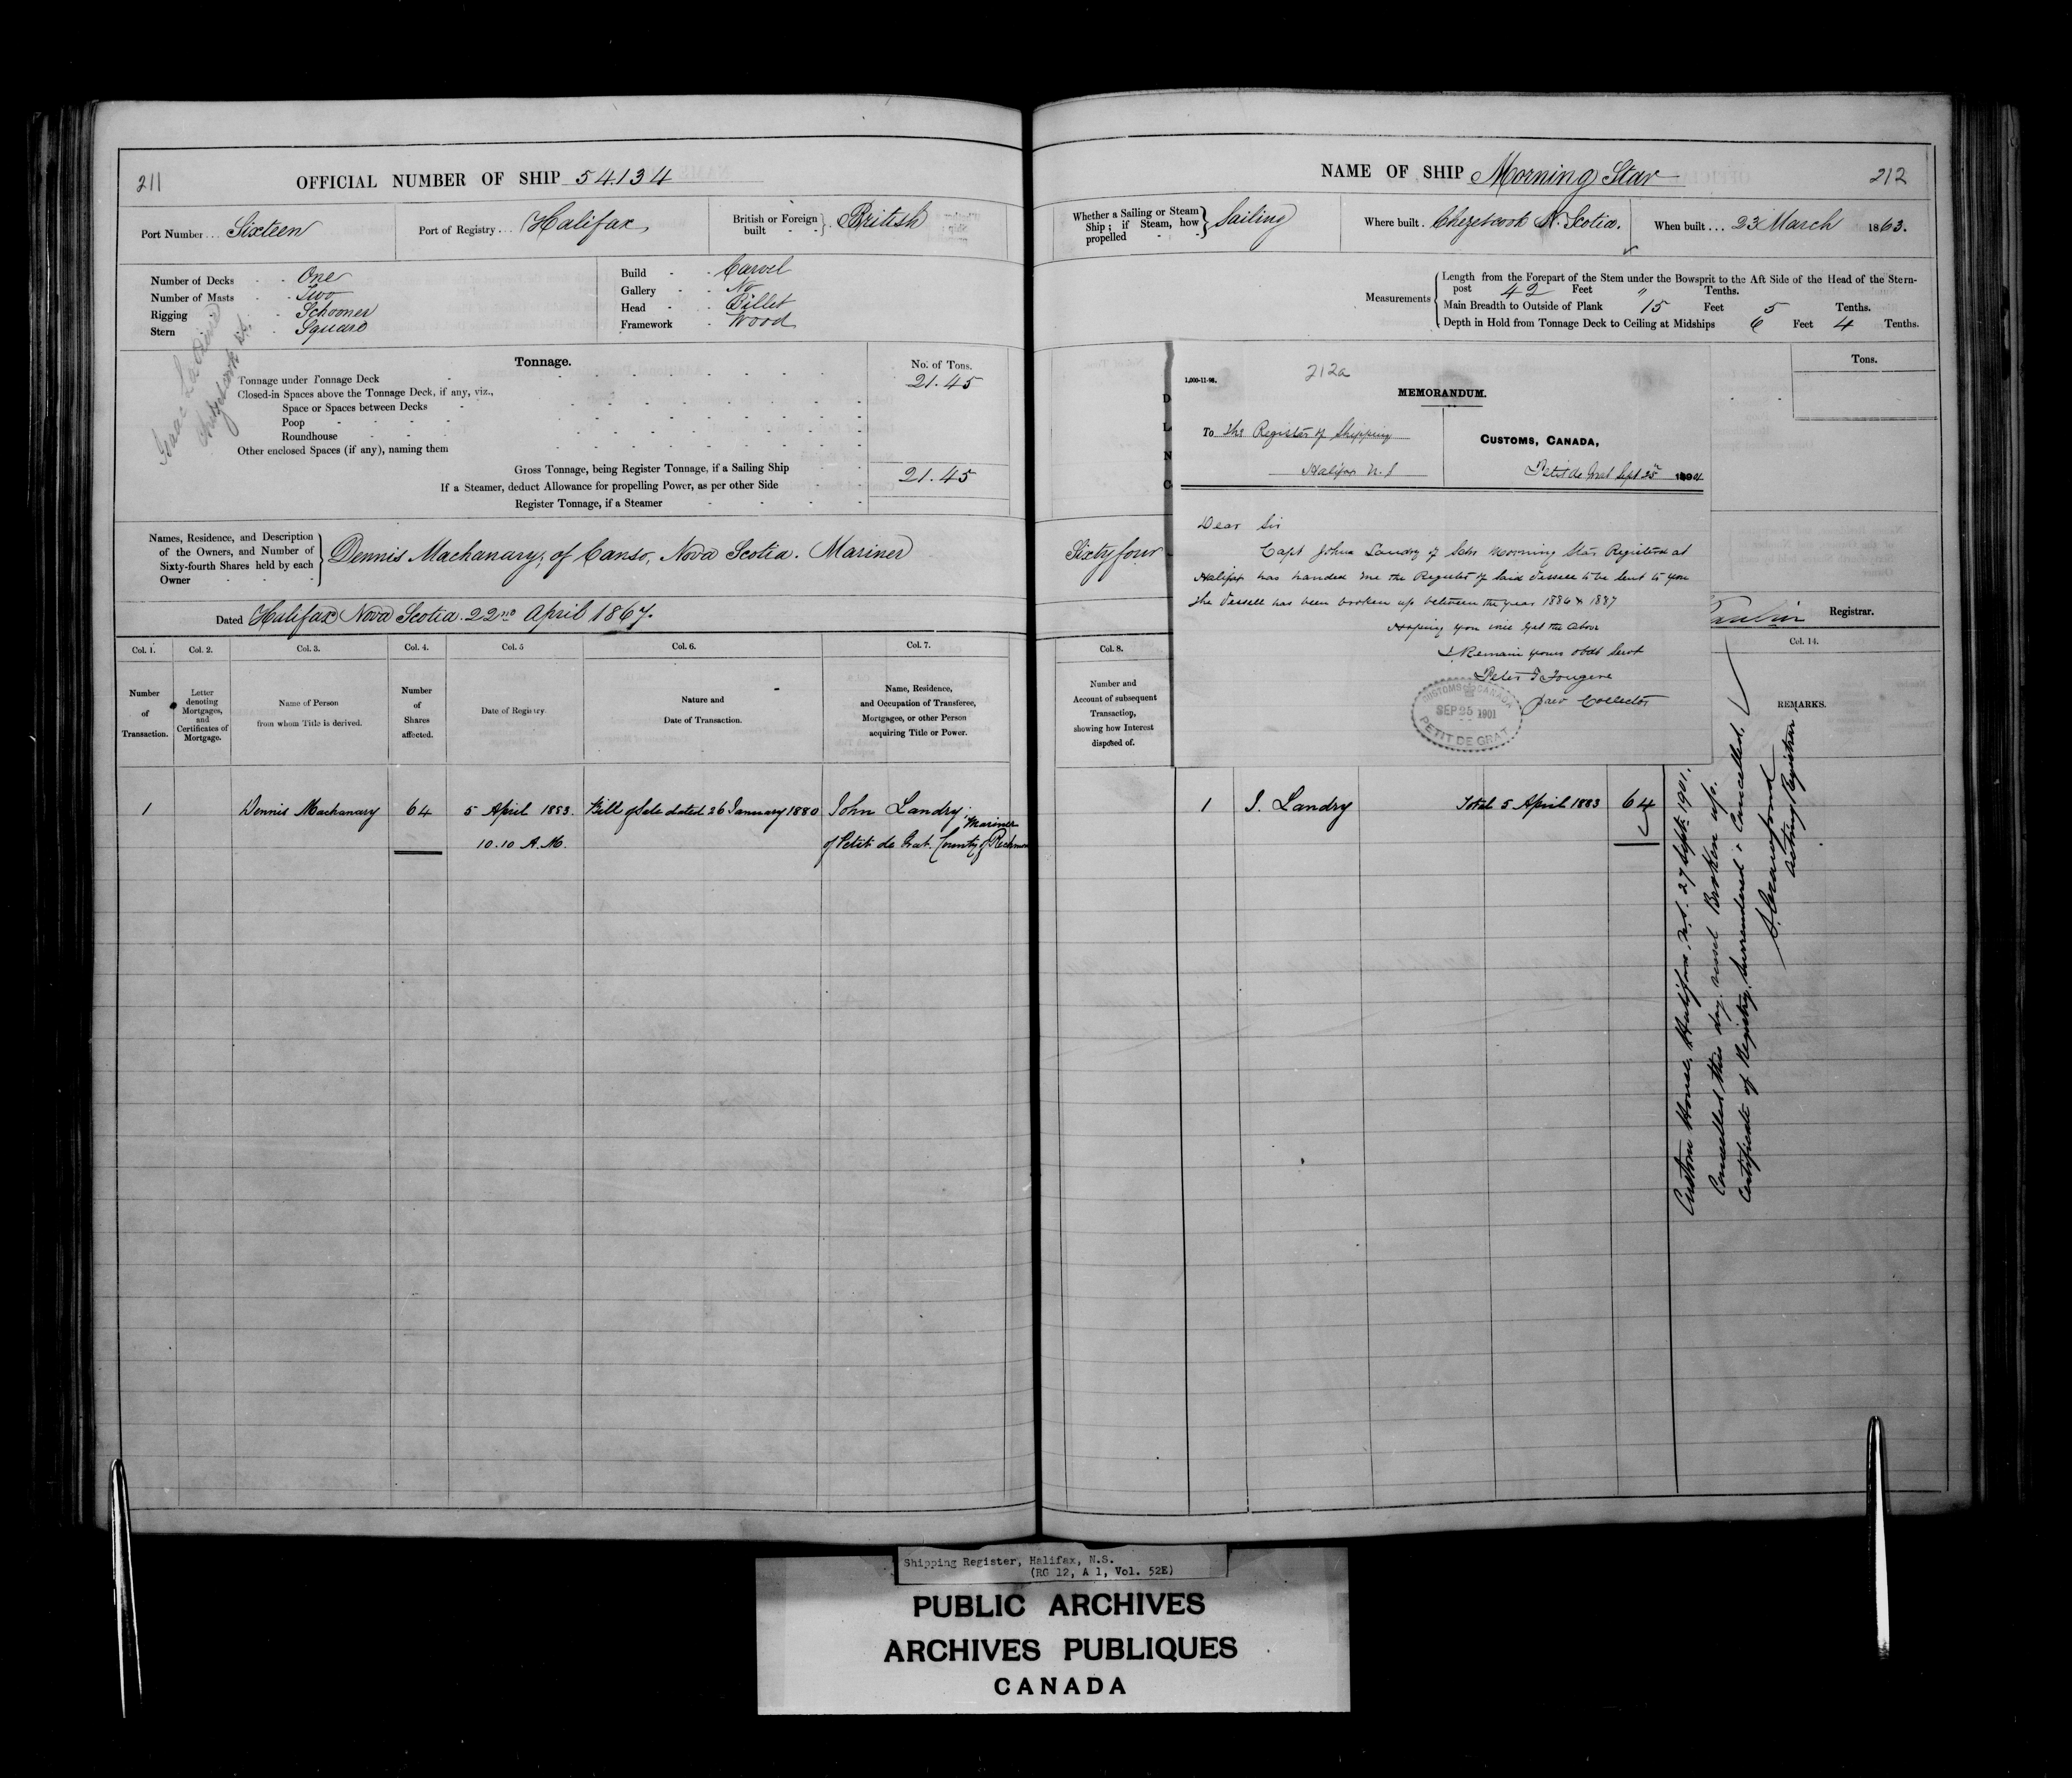 211
OFFICIAL NUMBER OF SHIP 54134
Port Number... Sixteen
Port of Registry... Halifax
British or Foreign built } British
Number of Decks - - One
Number of Masts - - Two
Rigging - Schooner
Stern - Square
Build - - Carvel
Gallery - - No
Head - - Billet
Framework - Wood
Isaac
Chezetcook
Tonnage.
No. of Tons.
Tonnage under Tonnage Deck 21.45
Closed-in Spaces above the Tonnage Deck, if any, viz.,
Space or Spaces between Decks
Poop
Roundhouse
Other enclosed Spaces (if any), naming them
Gross Tonnage, being Register Tonnage, if a Sailing Ship 21.45
If a Steamer, deduct Allowance for propelling Power, as per other Side
Register Tonnage, if a Steamer
Names, Residence, and Description
of the Owners, and Number of
Sixty-fourth Shares held by each
Owner
Dennis Machanary; of Canso, Nova Scotia. Mariner
Dated Halifax Nova Scotia. 22nd April 1867.
Col. 1. Col. 2. Col. 3. Col. 4. Col. 5 Col. 6. Col. 7.
Number of Transaction.
Letter denoting Mortgages, and Certificates of Mortgage.
Name of Person from whom Title is derived.
Number of Shares affected.
Date of Registry
Nature and Date of Transaction.
Name, Residence, and Occupation of Transferee, Mortgagee, or other Person acquiring Title or Power.
1 Dennis Machanary 64 5 April 1883. Bill of Sale dated 26 January 1880 John Landry; Mariner
10.10 A.M. of Petit de Grat. County of Richmon
NAME OF SHIP Morning Star
212
Whether a Sailing or Steam
Ship; if Steam, how
propelled
Sailing
Where built. Chezetcook N. Scotia.
When built... 23 March 1863.
Measurements
Length from the Forepart of the Stem under the Bowsprit to the Aft Side of the Head of the Stern-
post 42 Feet " Tenths.
Main Breadth to Outside of Plank 15 Feet 5 Tenths.
Depth in Hold from Tonnage Deck to Ceiling at Midships 6 Feet 4 Tenths.
Tons.
D
L
N
C
1,000-11-96.
212a
MEMORANDUM.
To The Register of Shipping
Halifax N.S
CUSTOMS, CANADA,
Petit de Grat Sept 25th 1901
Dear Sir
Capt John Landry of Schr Morning Star Registered at
Halifax has handed me the Register of said Vessell to be sent to you
The Vessell has been broken up between the year 1886 & 1887
Hoping you will get the above
I Remain yours obdt Servt
Peter I Fougere
Prev Collector
CUSTOMS CANADA
SEP 25 1901
PETIT DE GRAT
Sixty four
Registrar.
Col. 8.
Col. 14.
Number and
Account of subsequent
Transaction,
showing how Interest
disposed of.
REMARKS.
1 J. Landry Total 5 April 1883 64
Custom House, Halifax, N.S. 27 Sept. 1901.
Cancelled this day, vessel Broken up.
Certificate of Registry surrendered & Cancelled.
Crawford
Acting Registrar
Shipping Register, Halifax, N.S.
(RG 12, A 1, Vol. 52E)
PUBLIC ARCHIVES
ARCHIVES PUBLIQUES
CANADA